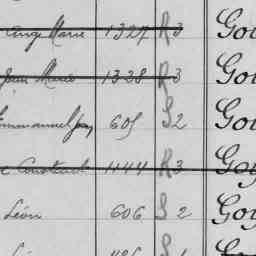 Ange Marie 1327 R3 Go
Jean Marie 1328 R3 Go
Emmanuel 605 S2 Go
Constant 1144 R3 Go
Léon 606 S2 Go
S